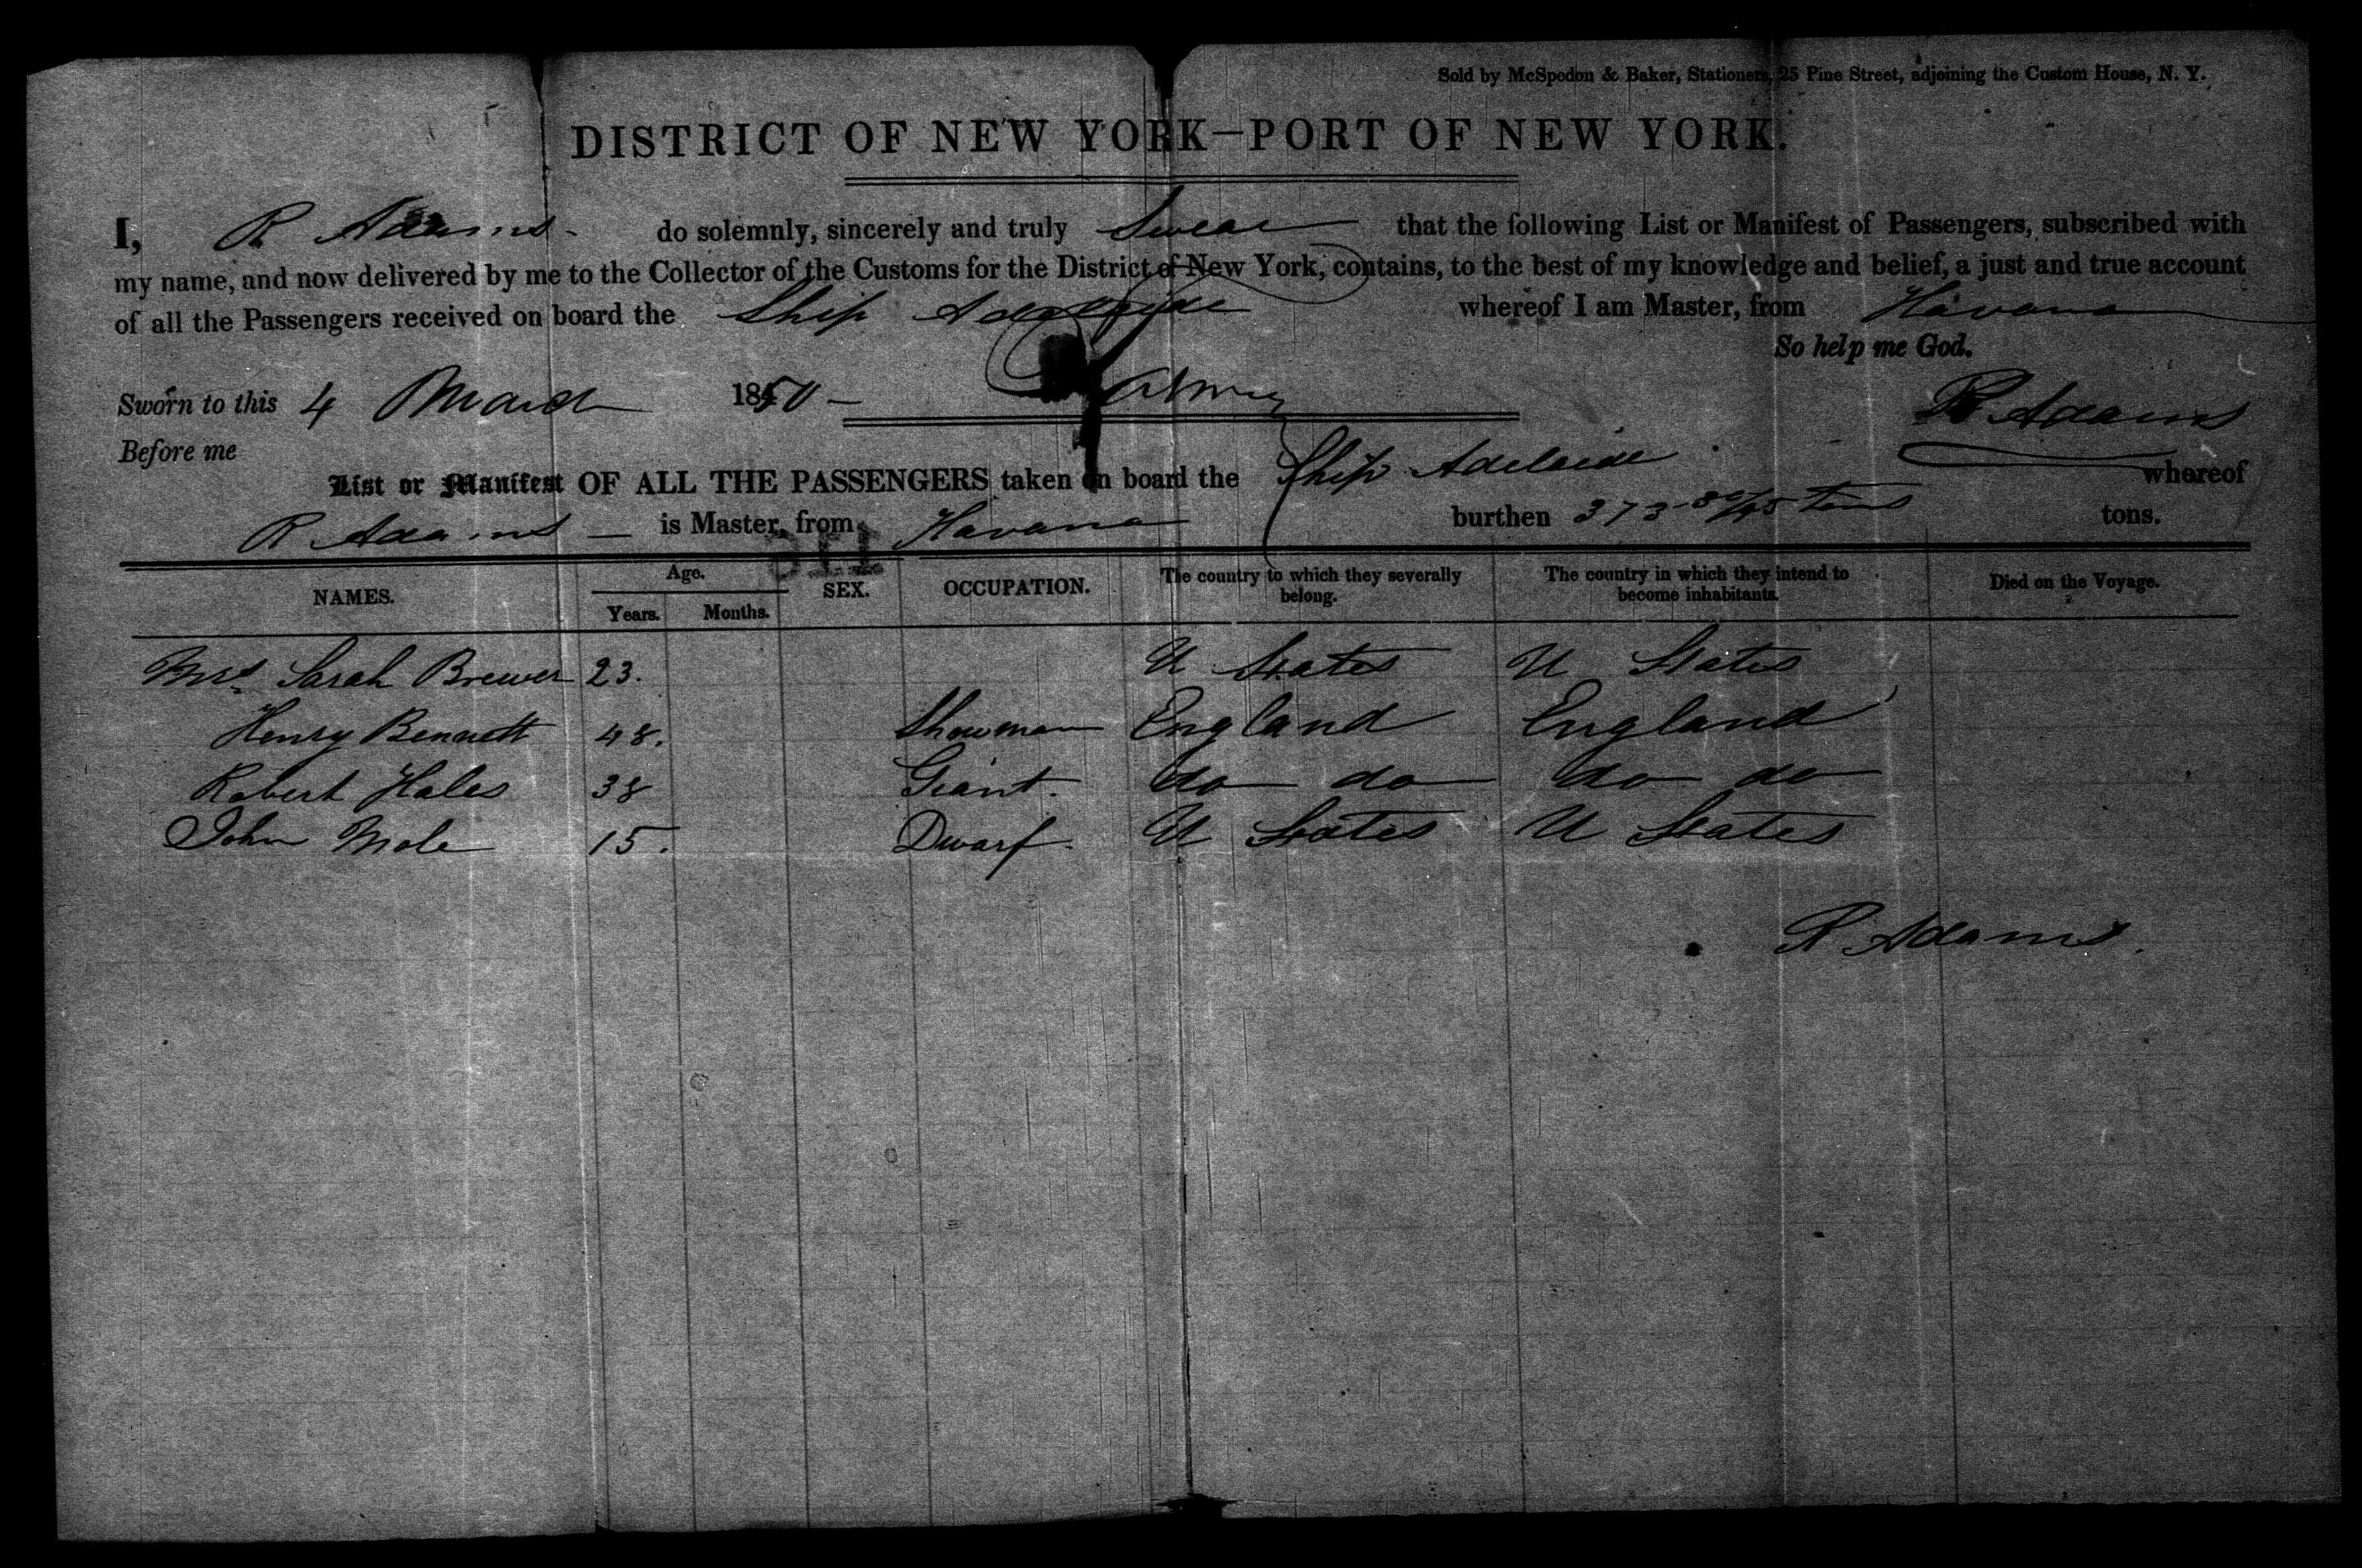 Sold by McSpedon & Baker, Stationers, 25 Pine Street, adjoining the Custom House, N. Y.
DISTRICT OF NEW YORK—PORT OF NEW YORK.
I, R Adams do solemnly, sincerely and truly Swear that the following List or Manifest of Passengers, subscribed with
my name, and now delivered by me to the Collector of the Customs for the District of New York, contains, to the best of my knowledge and belief, a just and true account
of all the Passengers received on board the Ship Adelaide whereof I am Master, from Havana
So help me God.
Sworn to this 4 March 1850 R Adams
Before me
List or Manifest OF ALL THE PASSENGERS taken on board the Ship Adelaide whereof
R Adams is Master, from Havana burthen 373 tons tons.
NAMES. Age. SEX. OCCUPATION. The country to which they severally belong. The country in which they intend to become inhabitants. Died on the Voyage.
Years. Months.
Mrs Sarah Brewer 23. U States U States
Henry Bennett 48. Showman England England
Robert Hales 38 Giant. do do do do
John Mole 15. Dwarf. U States U States
R Adams.